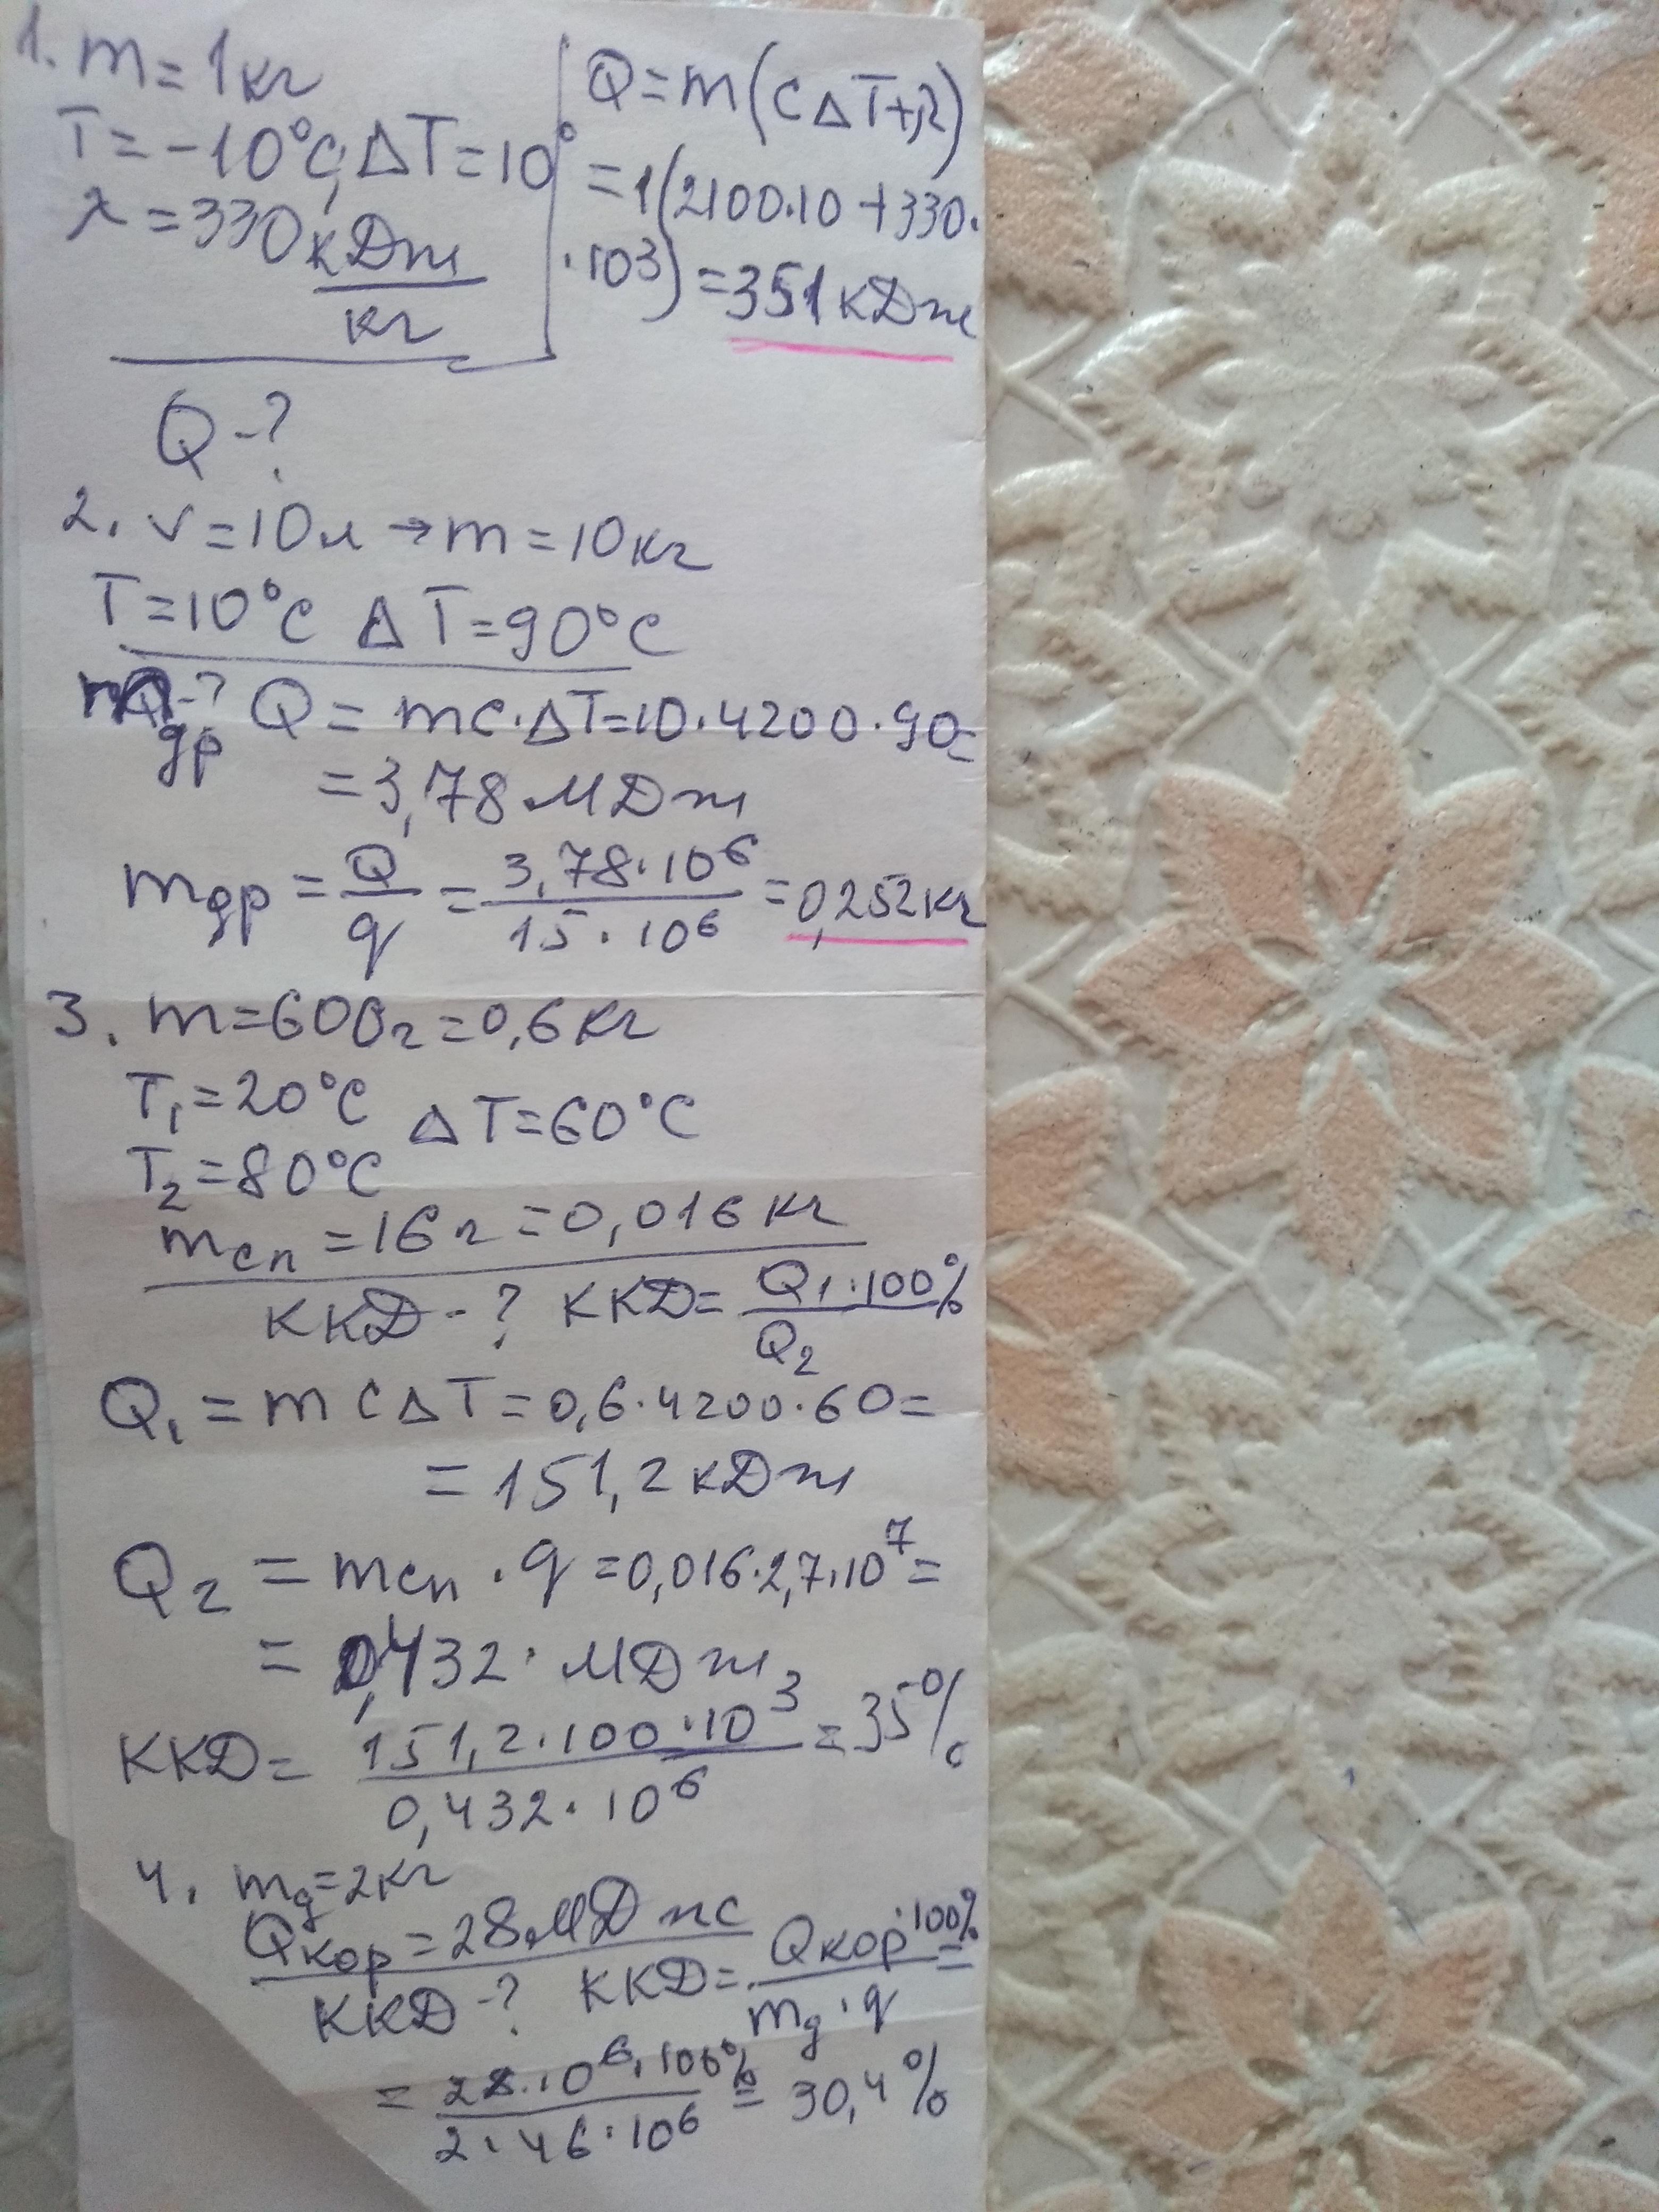 1. m = 1 кг
T = -10°C, ΔT = 10°
λ = 330 кДж/кг
Q = m(cΔT+λ)
= 1(2100·10 + 330·
·10³) = 351 кДж
Q - ?
2. V = 10 л → m = 10 кг
T = 10°C ΔT = 90°C
m др - ? Q = mc·ΔT = 10·4200·90 =
= 3,78 МДж
m др = Q/q = 3,78·10⁶/15·10⁶ = 0,252 кг
3. m = 600 г = 0,6 кг
T₁ = 20°C ΔT = 60°C
T₂ = 80°C
m сп = 16 г = 0,016 кг
ККД - ? ККД = Q₁·100%/Q₂
Q₁ = mcΔT = 0,6·4200·60 =
= 151,2 кДж
Q₂ = m сп · q = 0,016·2,7·10⁷ =
= 0,432· МДж
ККД = 151,2·100·10³/0,432·10⁶ = 35%
4. m д = 2 кг
Q кор = 28 МДж
ККД - ? ККД = Q кор·100%/m д·q =
= 28·10⁶·100%/2·46·10⁶ = 30,4%